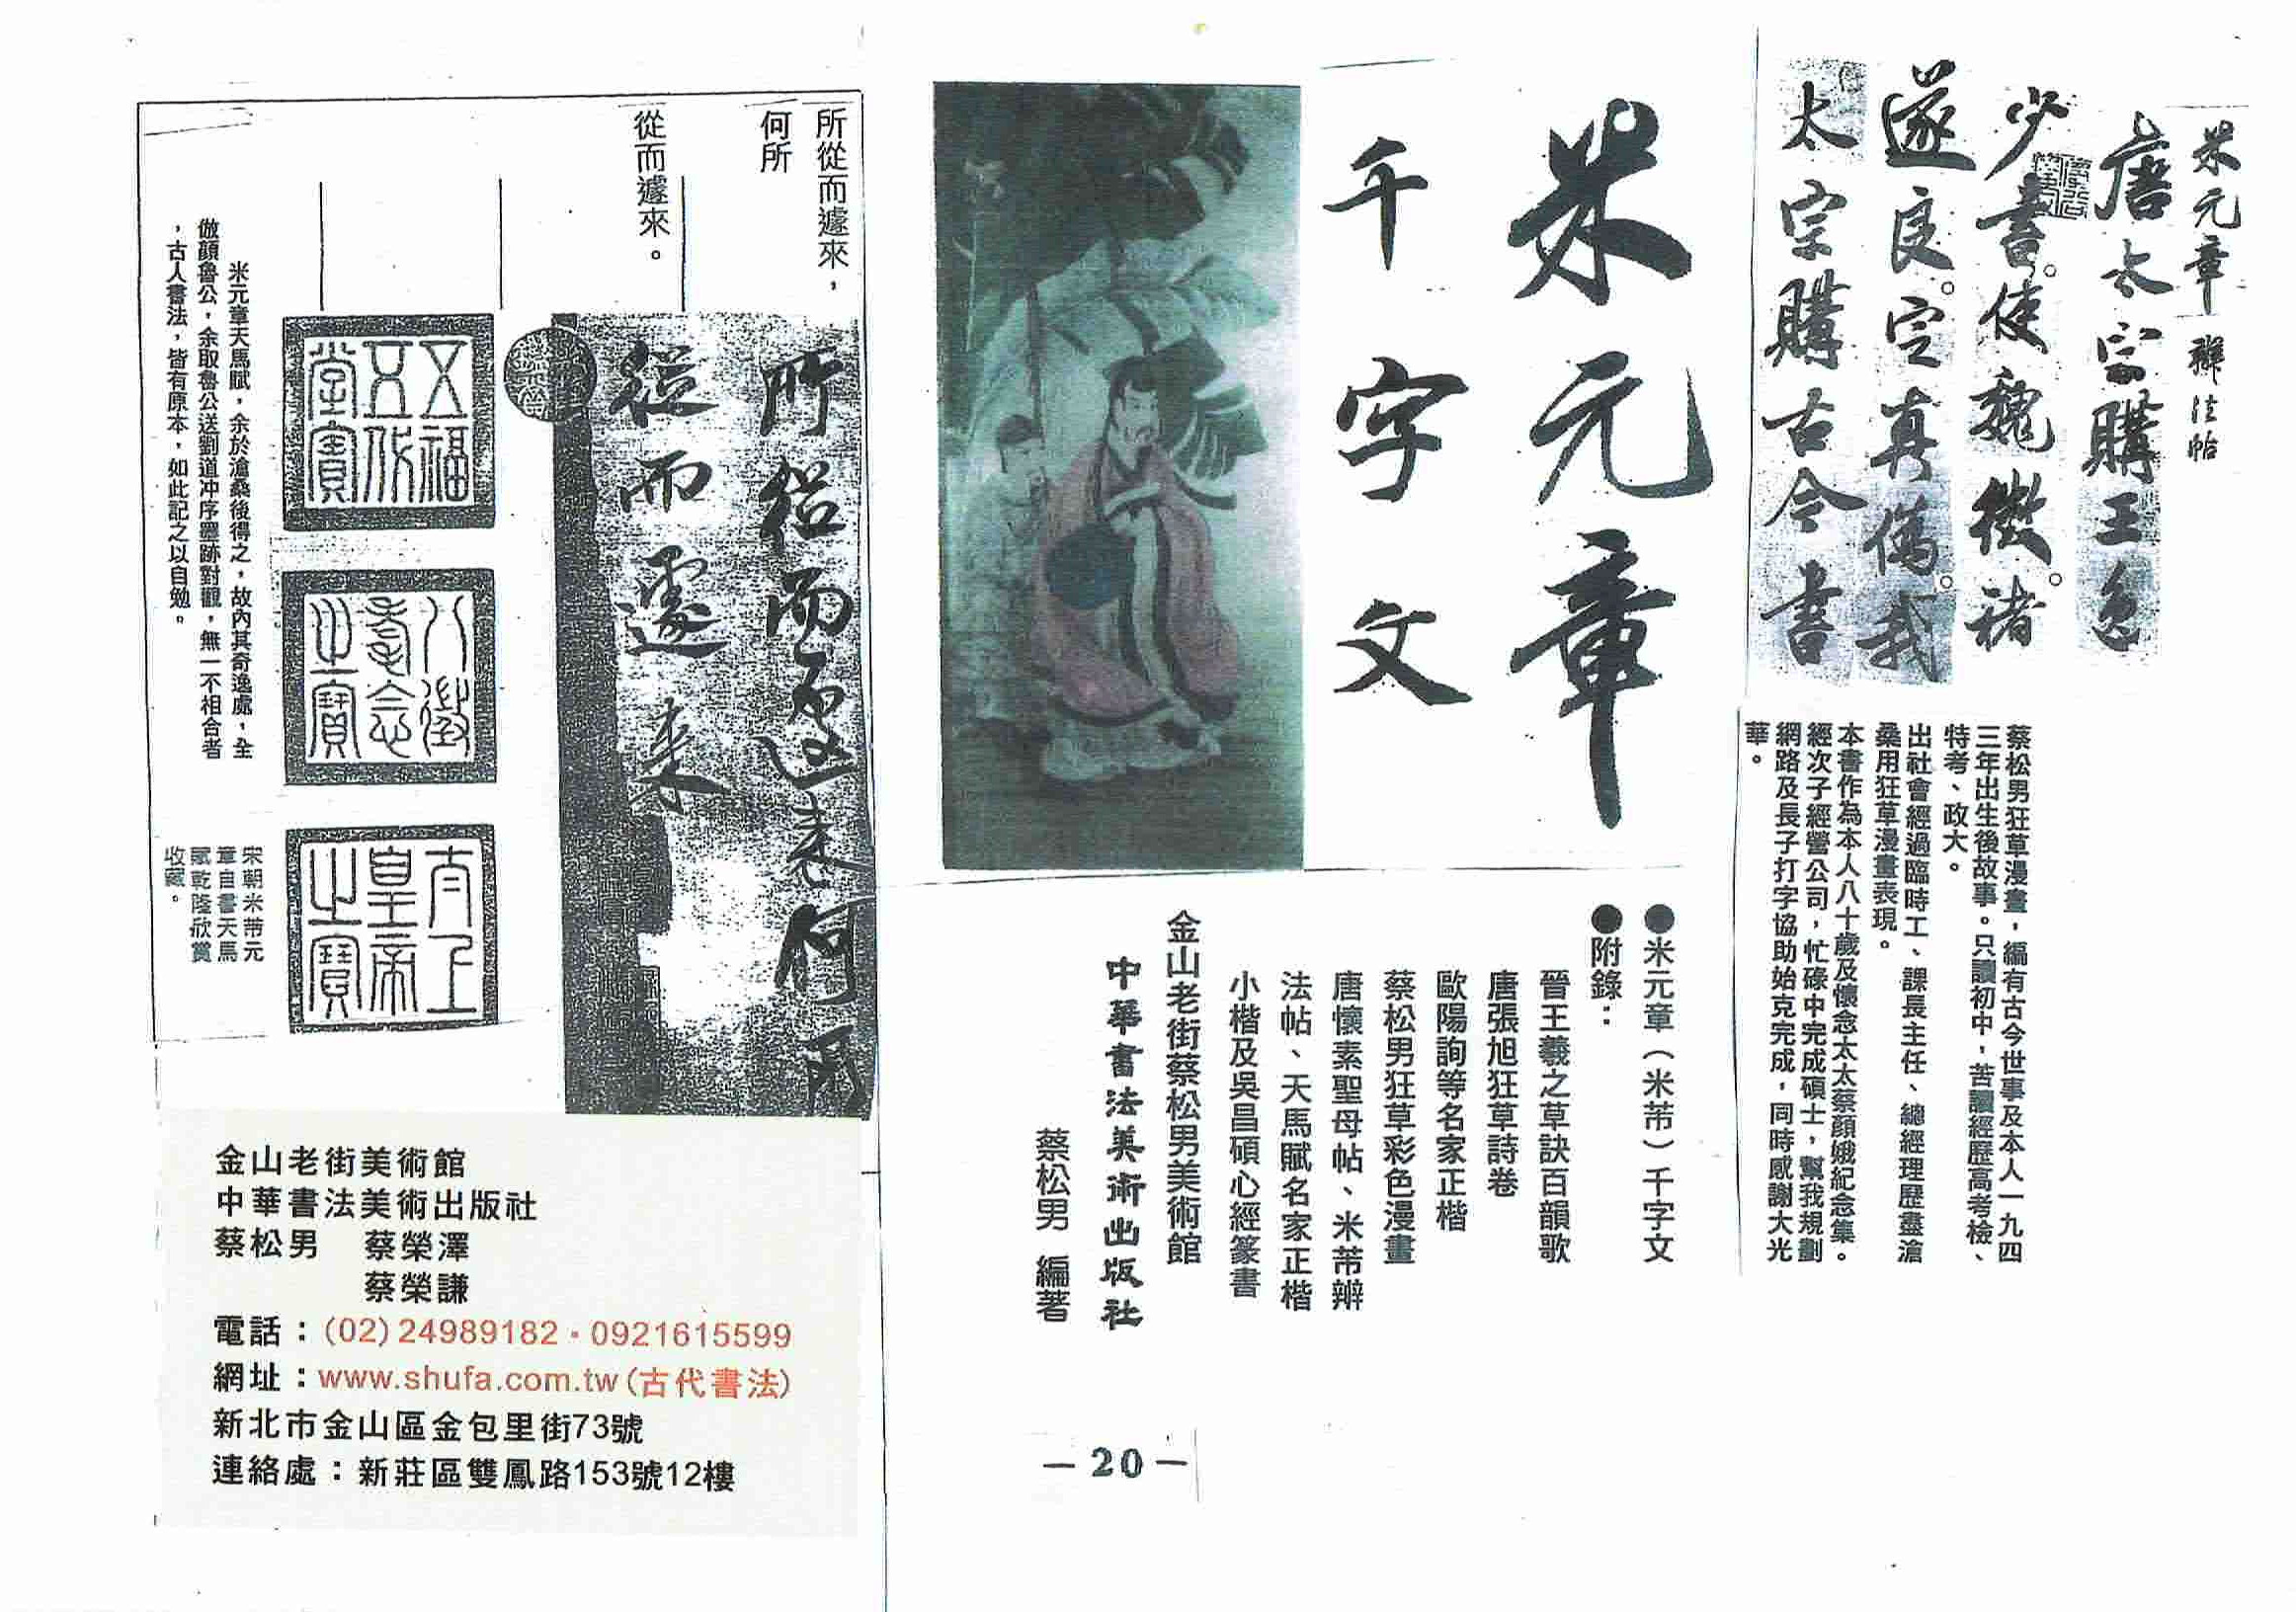 米元章 辯法帖
唐太宗購王色
少書。使魏徵褚
遂良。定真偽。我
太宗購古今書
蔡松男狂草漫畫，編有古今世事及本人一九四
三年出生後故事。只讀初中，苦讀經歷高考檢、
特考、政大。
出社會經過臨時工、課長主任、總經理歷盡滄
桑用狂草漫畫表現。
本書作為本人八十歲及懷念太太蔡顏娥紀念集。
經次子經營公司，忙碌中完成碩士，幫我規劃
網路及長子打字協助始克完成，同時感謝大光
華。
米元章
千字文
●米元章（米芾）千字文
●附錄：
晉王羲之草訣百韻歌
唐張旭狂草詩卷
歐陽詢等名家正楷
蔡松男狂草彩色漫畫
唐懷素聖母帖、米芾辯
法帖、天馬賦名家正楷
小楷及吳昌碩心經篆書
金山老街蔡松男美術館
中華書法美術出版社
蔡松男 編著
－20－
所從而遽來，
何所
從而遽來。
所從而遽來何所
從而遽來
五福五代堂寶
八徵耄念之寶
太上皇帝之寶
米元章天馬賦，余於滄桑後得之，故內其奇逸處，全
倣顏魯公，余取魯公送劉道冲序墨跡對觀，無一不相合者
，古人書法，皆有原本，如此記之以自勉。
宋朝米芾元
章自書天馬
賦乾隆欣賞
收藏。
金山老街美術館
中華書法美術出版社
蔡松男 蔡榮澤
蔡榮謙
電話：(02)24989182・0921615599
網址：www.shufa.com.tw(古代書法)
新北市金山區金包里街73號
連絡處：新莊區雙鳳路153號12樓